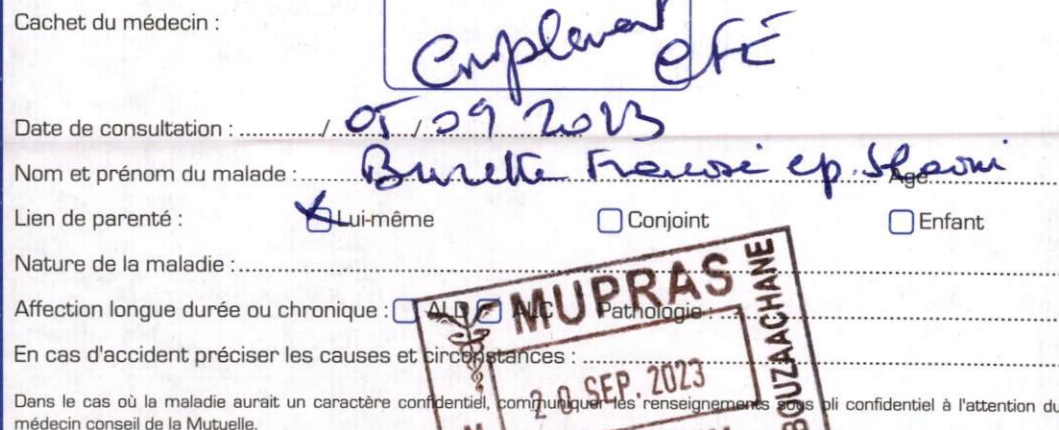 Cachet du médecin :
Complement CFE
Date de consultation : 05 / 09 2023
Nom et prénom du malade : Burette ep. Age
Lien de parenté : Lui-même Conjoint Enfant
Nature de la maladie :
Affection longue durée ou chronique : ALD ALC Pathologie :
En cas d'accident préciser les causes et circonstances :
Dans le cas où la maladie aurait un caractère confidentiel, communiquer les renseignements sous pli confidentiel à l'attention du
médecin conseil de la Mutuelle.
MUPRAS
20 SEP. 2023
BOUZAACHANE